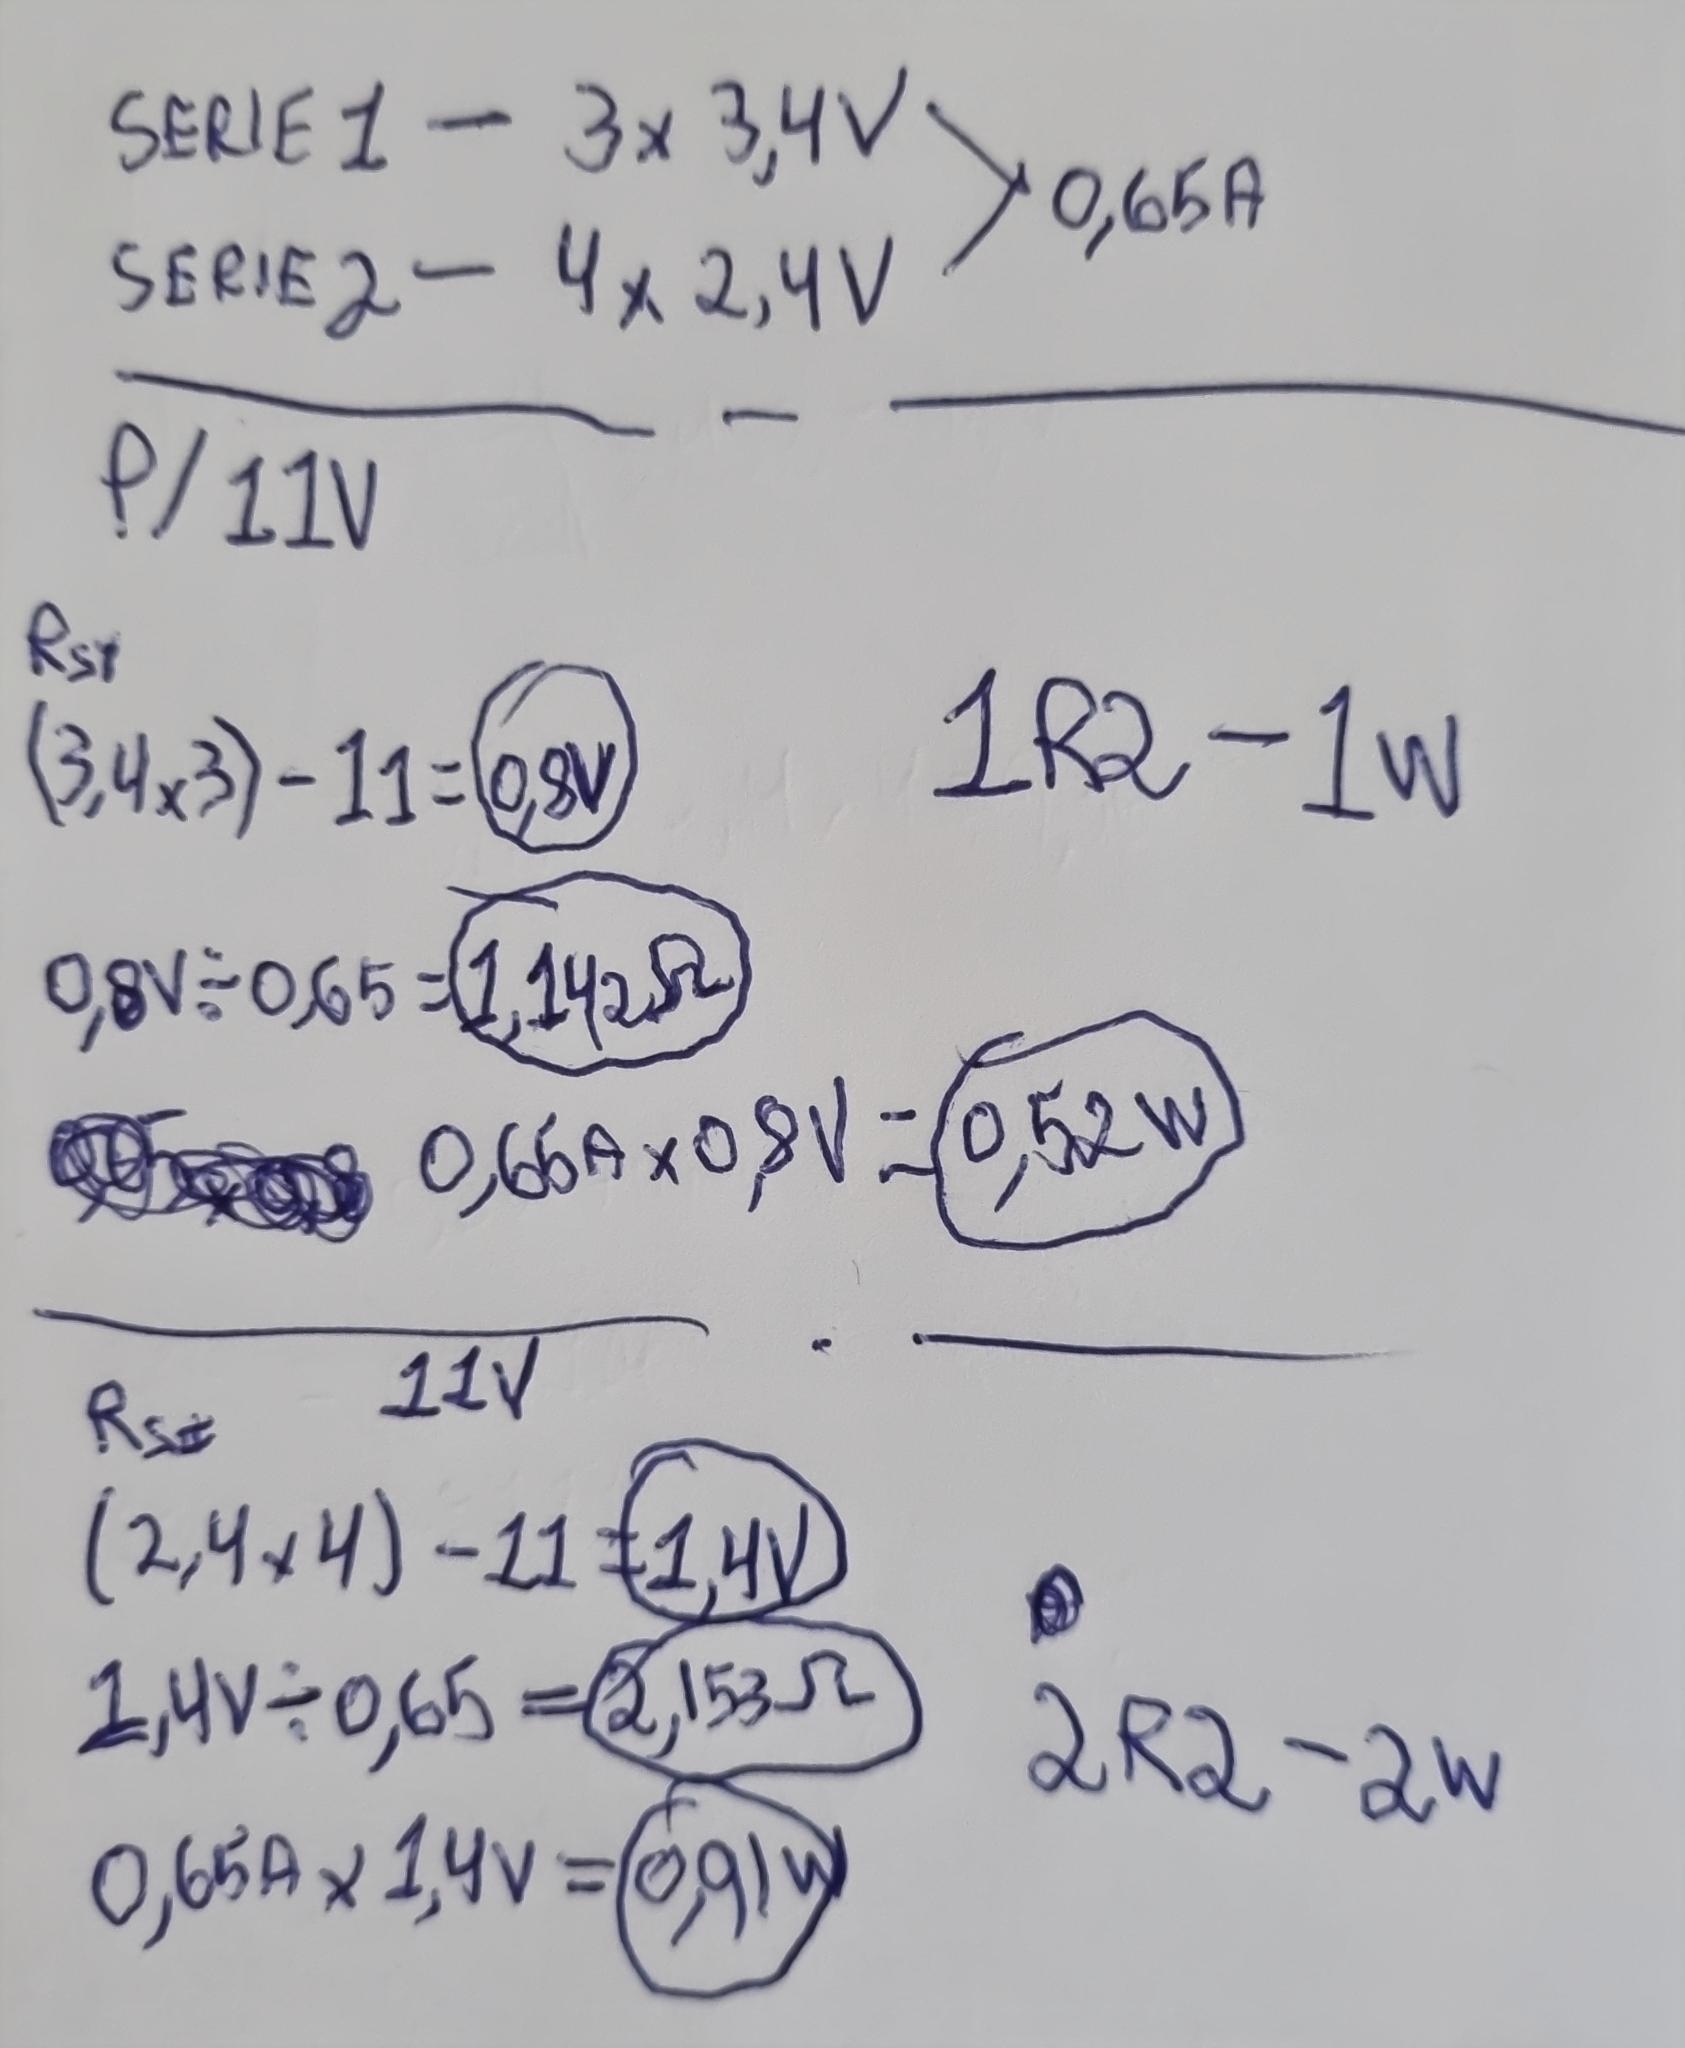 SERIE 1 - 3x 3,4V
0,65A
SERIE 2 - 4x 2,4V
P/ 11V
RS1
(3,4x3) - 11 = 0,8V
1R2 - 1W
0,8V ÷ 0,65 = 1,142Ω
0,65A x 0,8V = 0,52W
11V
RSI
(2,4x4) - 11 = 1,4V
1,4V ÷ 0,65 = 2,153Ω
2R2 - 2W
0,65A x 1,4V = 0,91W